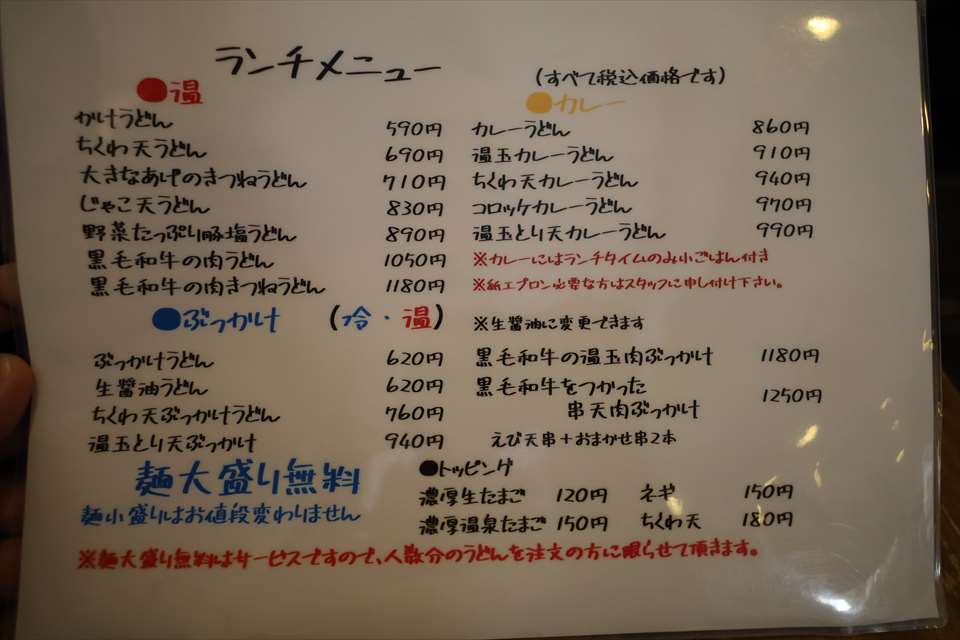 ランチメニュー
(すべて税込価格です)
●温
かけうどん 590円
ちくわ天うどん 690円
大きなあげのきつねうどん 710円
じゃこ天うどん 830円
野菜たっぷり豚塩うどん 890円
黒毛和牛の肉うどん 1050円
黒毛和牛の肉きつねうどん 1180円
●カレー
カレーうどん 860円
温玉カレーうどん 910円
ちくわ天カレーうどん 940円
コロッケカレーうどん 970円
温玉とり天カレーうどん 990円
※カレーにはランチタイムのみ小ごはん付き
※紙エプロン必要な方はスタッフに申し付け下さい。
●ぶっかけ (冷・温) ※生醤油に変更できます
ぶっかけうどん 620円
生醤油うどん 620円
ちくわ天ぶっかけうどん 760円
温玉とり天ぶっかけ 940円
黒毛和牛の温玉肉ぶっかけ 1180円
黒毛和牛をつかった
串天肉ぶっかけ 1250円
えび天串+おまかせ串2本
麺大盛り無料
麺小盛りはお値段変わりません
●トッピング
濃厚生たまご 120円 ネギ 150円
濃厚温泉たまご 150円 ちくわ天 180円
※麺大盛り無料はサービスですので、人数分のうどんを注文の方に限らせて頂きます。